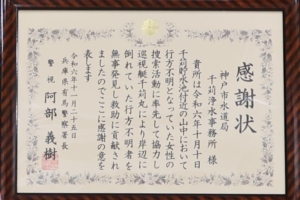 感謝状
神戸市水道局
千苅浄水事務所 様
貴所は令和六年十月十日
千苅貯水池付近の山中において
行方不明となっていた女性の
捜索活動に率先して協力し
巡視艇千苅丸により岸辺に
倒れていた行方不明者を
無事発見し救助に貢献され
ましたのでここに感謝の意を
表します
令和六年十一月二十五日
兵庫県有馬警察署長
警視 阿部義樹